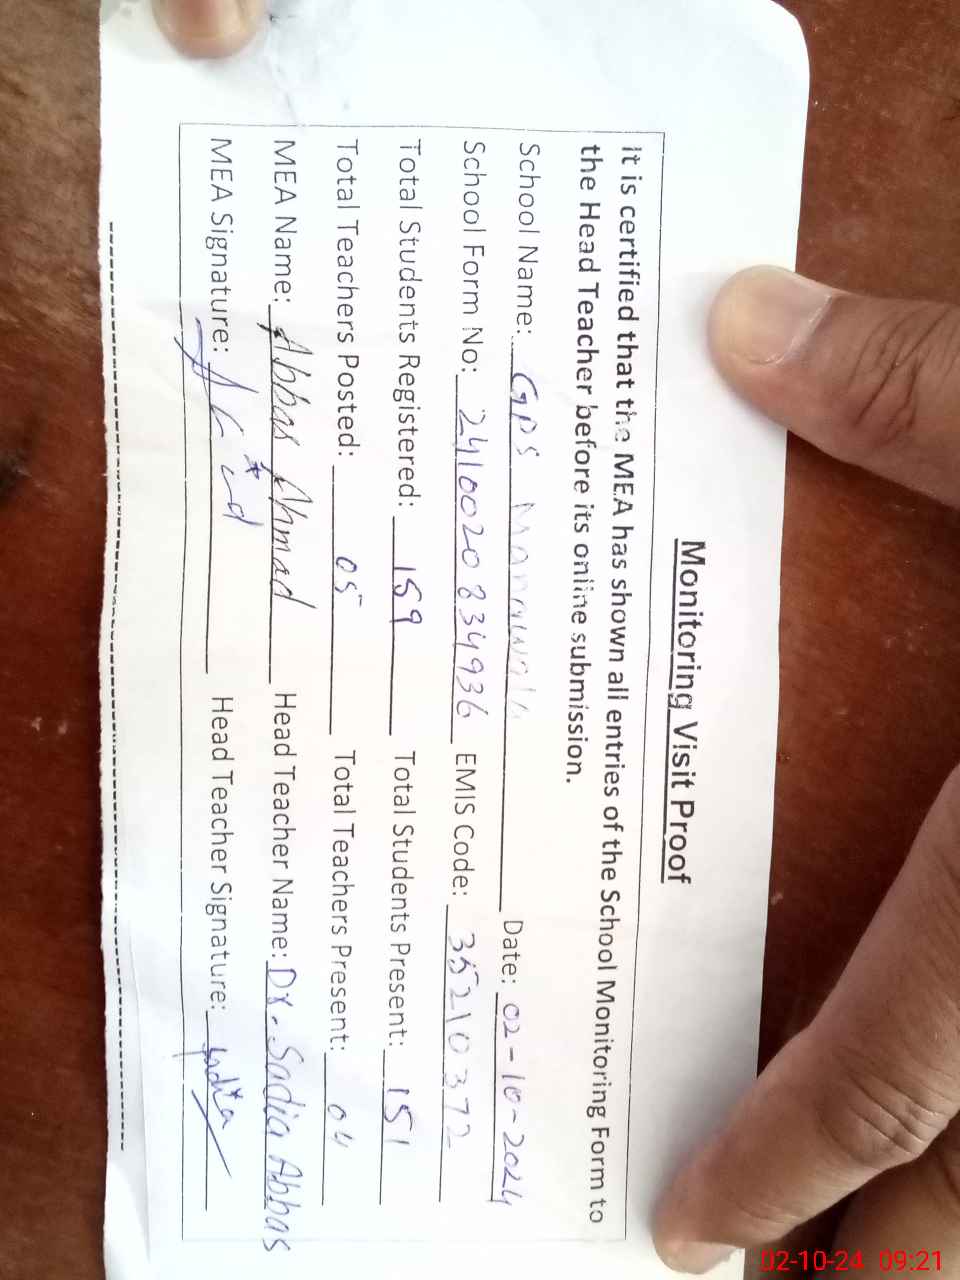 Monitoring Visit Proof
It is certified that the MEA has shown all entries of the School Monitoring Form to
the Head Teacher before its online submission.
School Name: GPS Date: 02-10-2024
School Form No: 2410020834936 EMIS Code: 35210372
Total Students Registered: 159 Total Students Present: 151
Total Teachers Posted: 05 Total Teachers Present: 04
MEA Name: Abbas Ahmad Head Teacher Name: Dr. Sadia Abbas
MEA Signature: Head Teacher Signature: Sadia
02-10-24 09:21